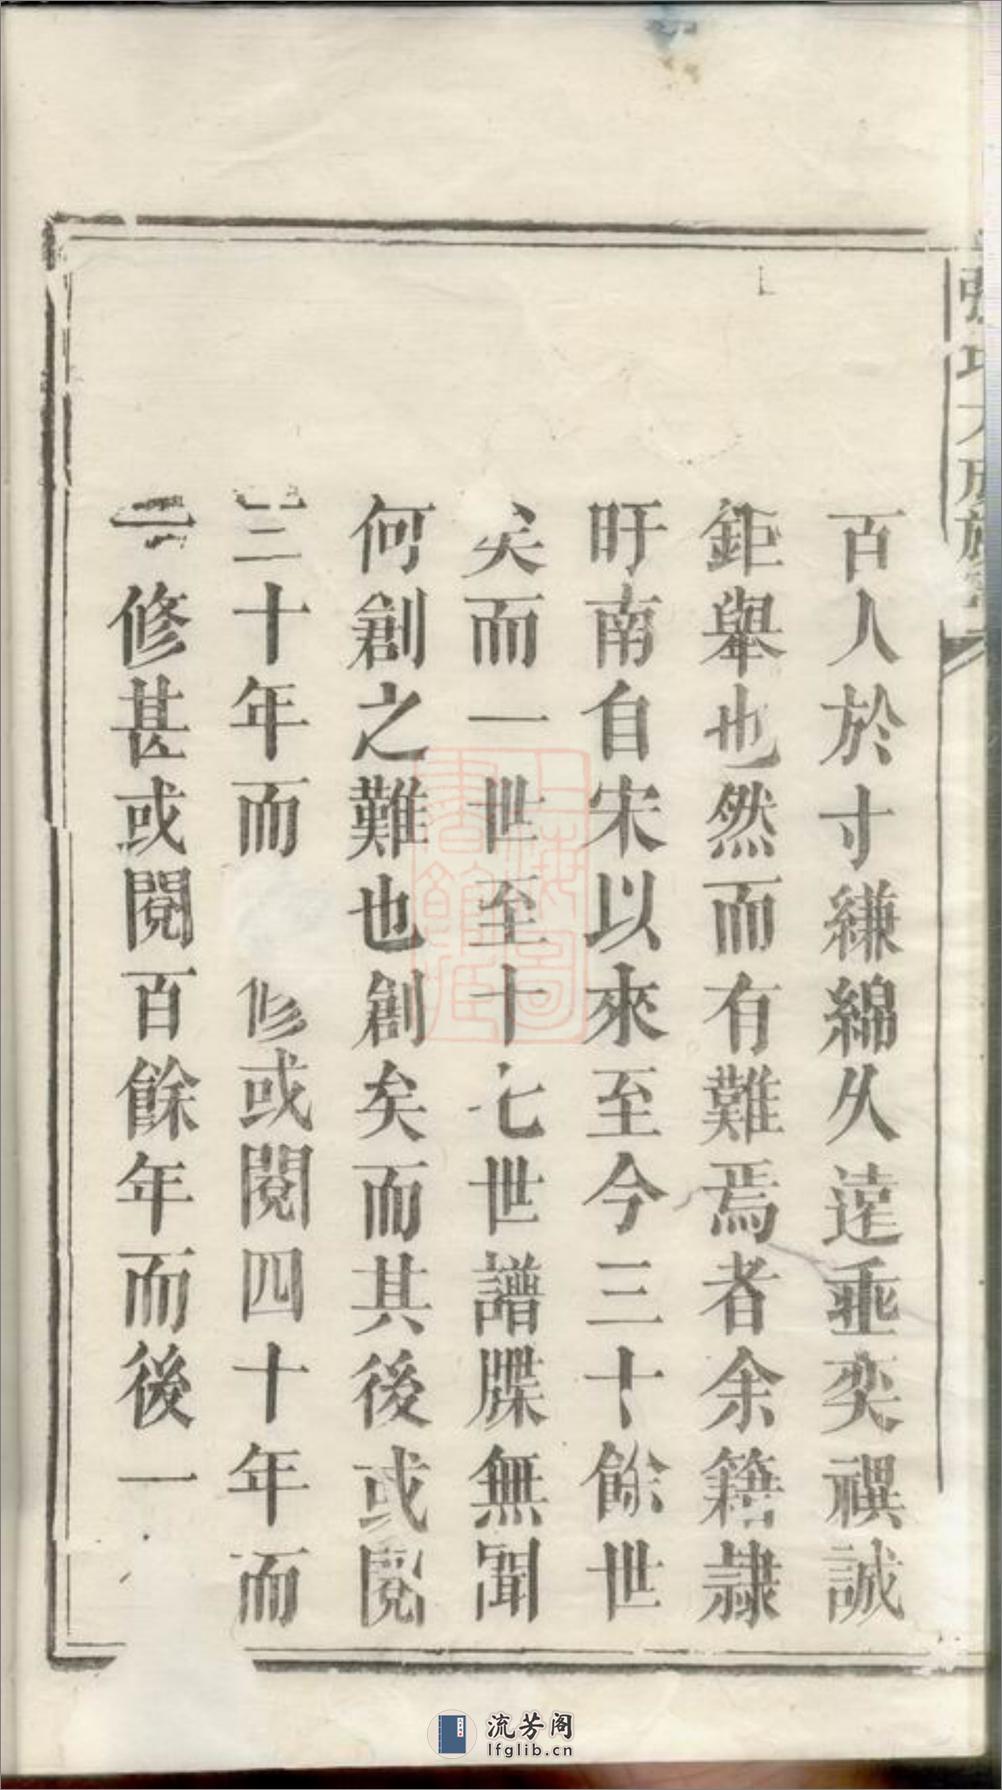 百人於寸縑綿久遠垂奕禩誠
鉅舉也然而有難焉者余籍隷
盱南自宋以來至今三十餘世
矣而一世至十七世譜牒無聞
何創之難也創矣而其後或閱
三十年而 修或閱四十年而
一修甚或閱百餘年而後一
張氏大成族
上海圖書館藏
流芳阁
lfglib.cn